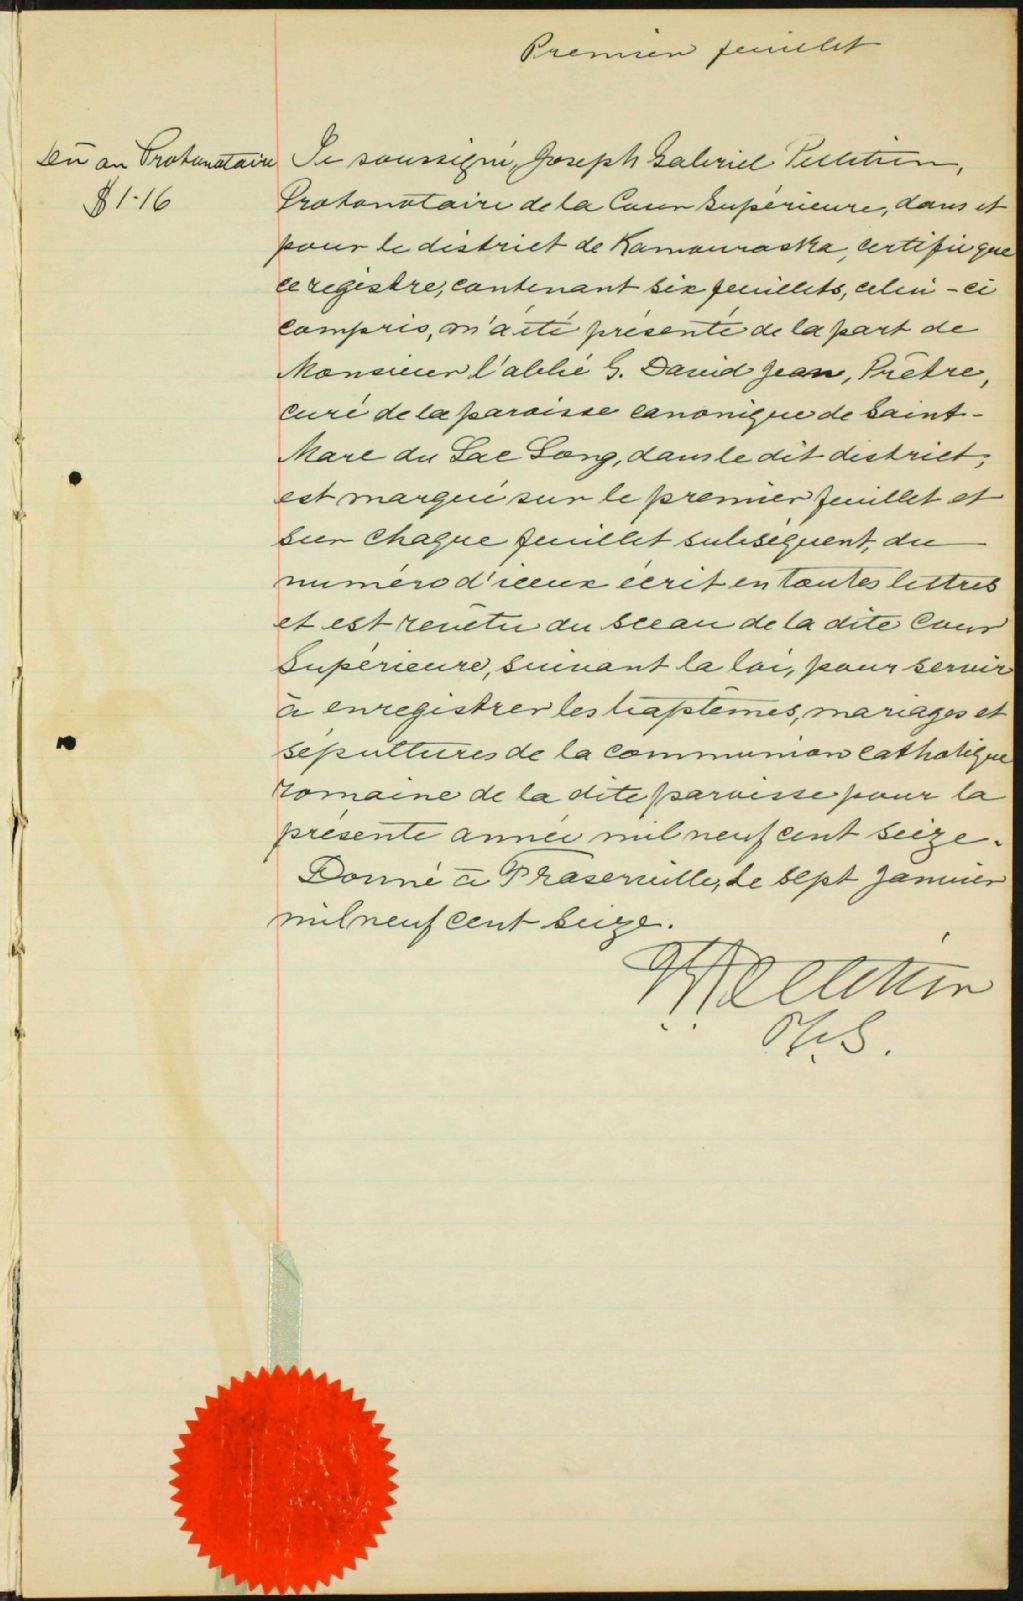 Premier feuillet
Dû au Protonotaire
$1.16
Je soussigné, Joseph Gabriel Pelletier,
Protonotaire de la Cour Supérieure, dans et
pour le district de Kamouraska, certifie que
ce régistre, contenant six feuillets, celui-ci
compris, m'a été présenté de la part de
Monsieur l'abbé G. David Jean, Prêtre,
curé de la paroisse canonique de Saint-
Marc du Lac Long, dans le dit district;
est marqué sur le premier feuillet et
sur chaque feuillet subséquent, du
numéro d'iceux écrit en toutes lettres
et est revêtu du sceau de la dite Cour
Supérieure, suivant la loi, pour servir
à enregistrer les baptêmes, mariages et
sépultures de la communion catholique
romaine de la dite paroisse pour la
présente année mil neuf cent seize.
Donné à Fraserville, le sept janvier
mil neuf cent seize.
Pelletier
P.C.S.